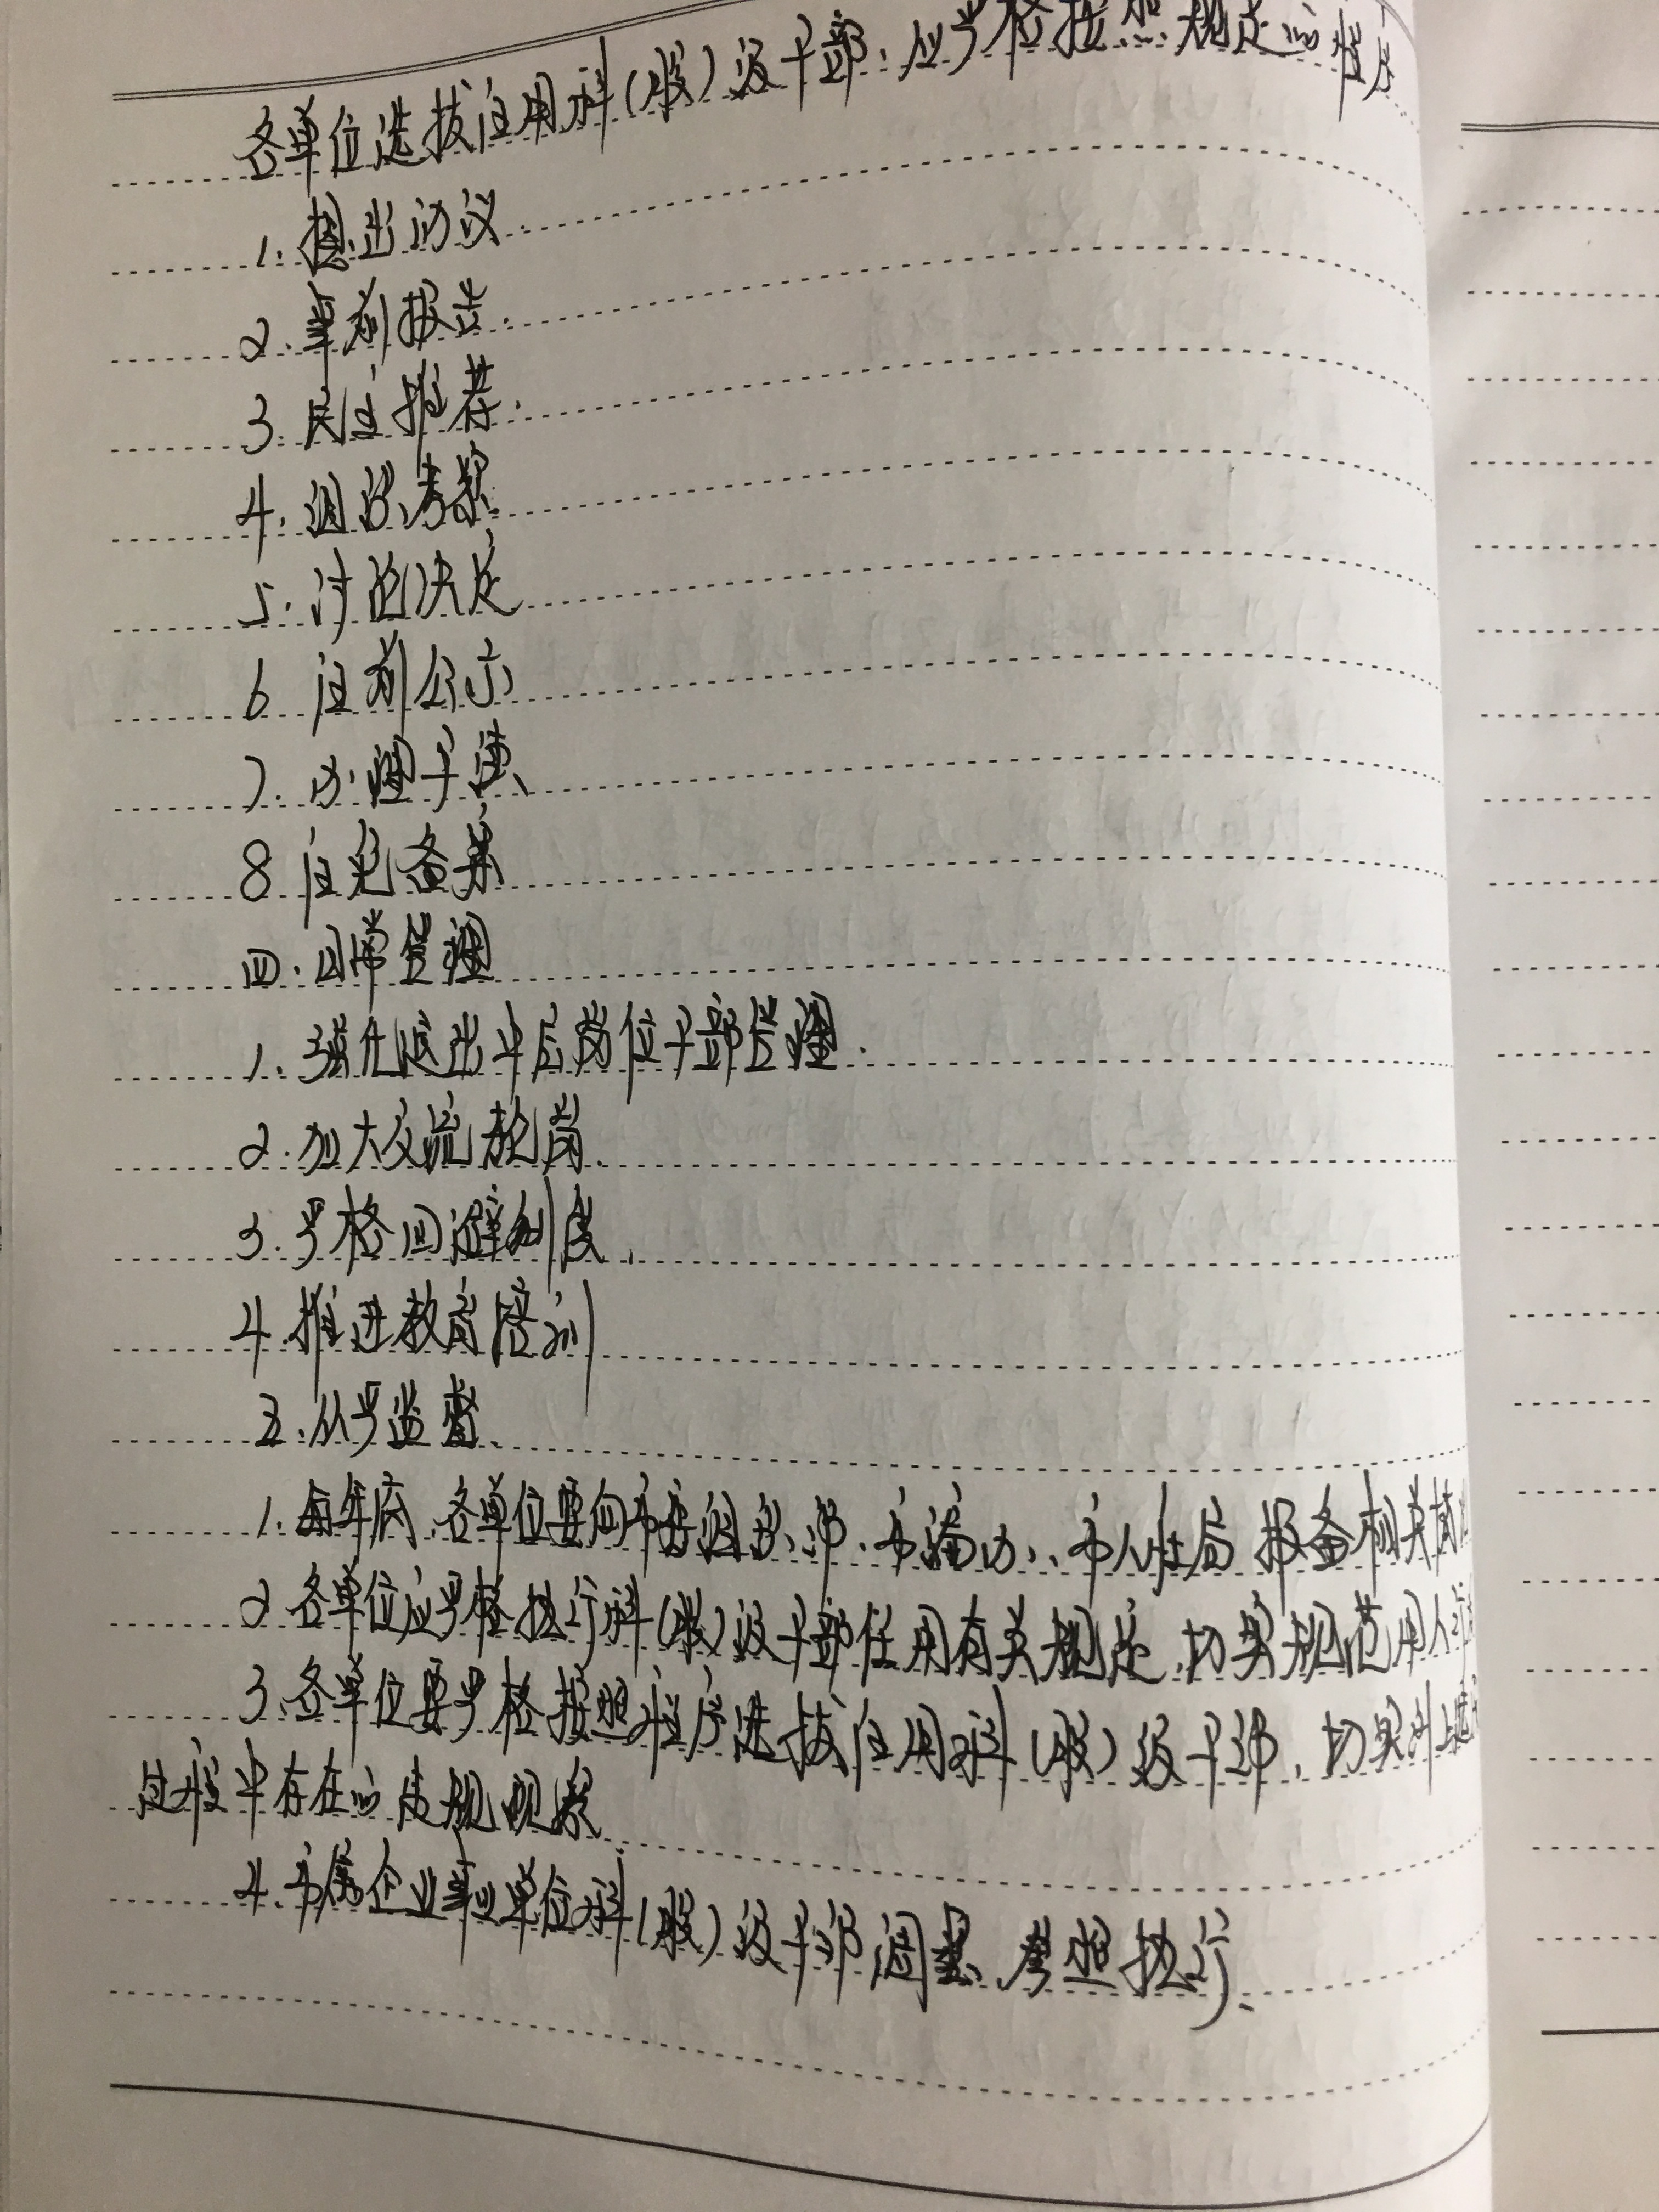 各单位选拔任用科(股)级干部,应严格按照规定的程序
1.提出动议.
2.事前报告.
3.民主推荐.
4.组织考察.
5.讨论决定
6 任前公示
7.办理手续
8 任免备案
四.日常管理
1.强化退出中层岗位干部管理.
2.加大交流轮岗.
3.严格回避制度.
4.推进教育培训
五.从严监督.
1.每年底,各单位要向市委组织部、市编办、市人社局 报备相关
2 各单位应严格执行科(股)级干部任用有关规定,切实规范用人行
3.各单位要严格按照程序选拔任用科(股)级干部,切实
过程中存在的违规现象
4.市属企业事业单位科(股)级干部调整、参照执行.